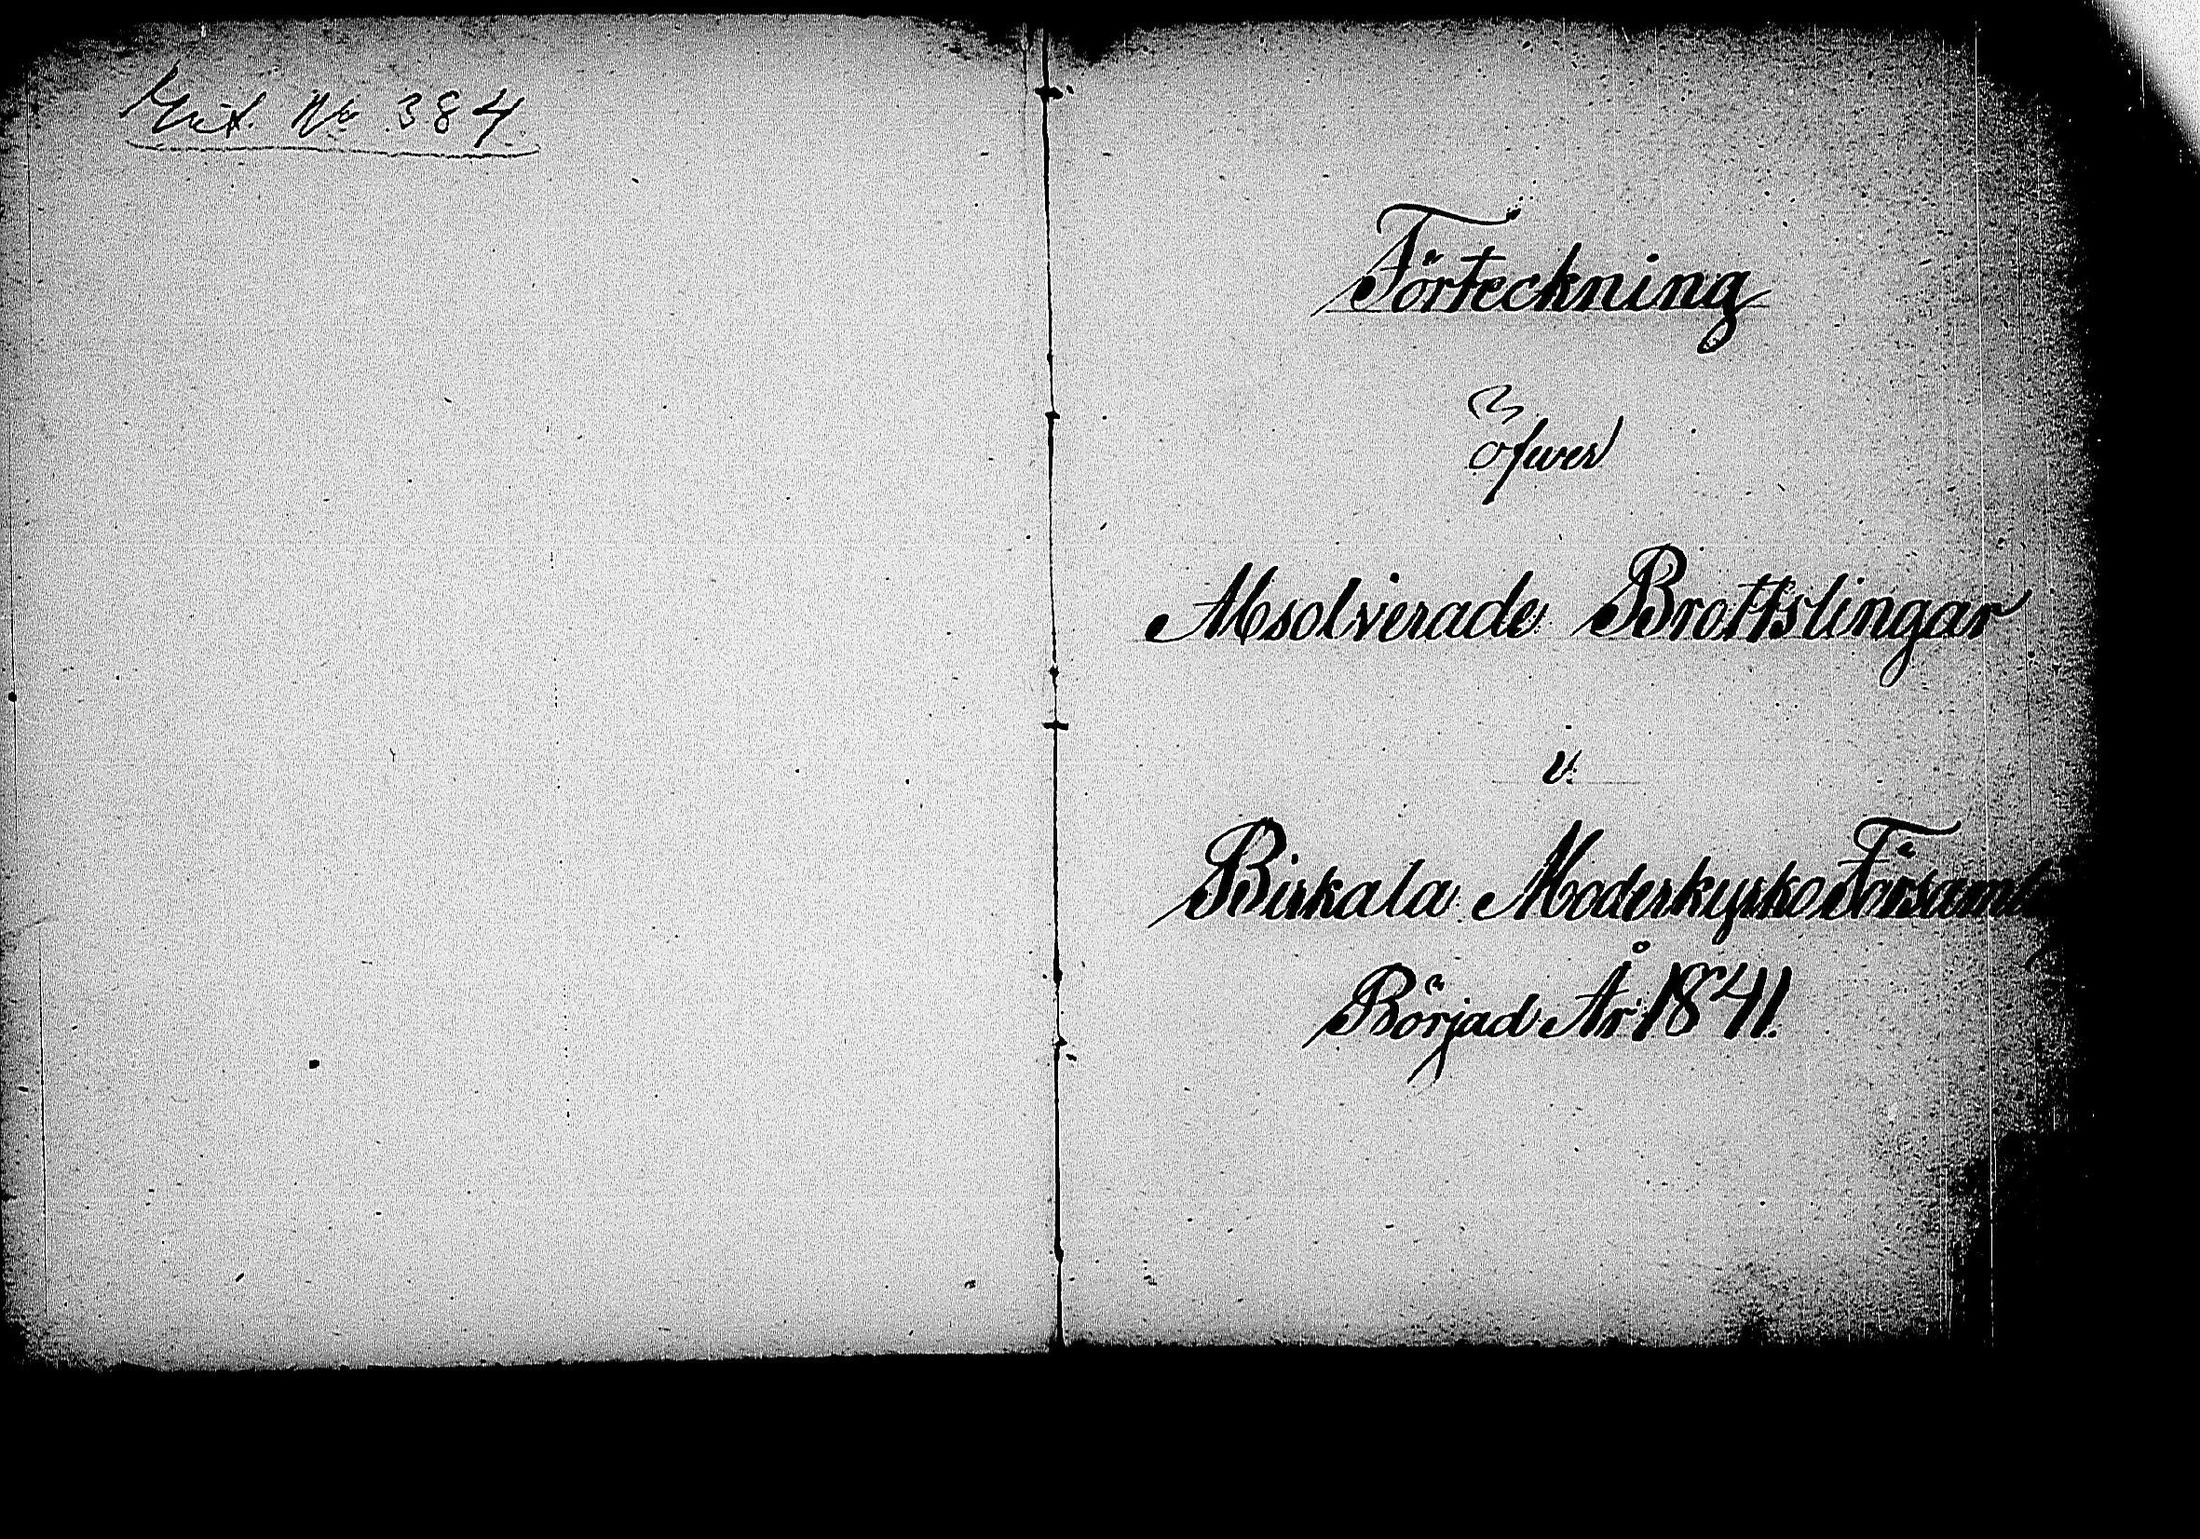 No 384
Förteckning
öfwer
Absolverade Brottslingar
i
Birkala Moderkyrko Församl
Börjad År 1841.